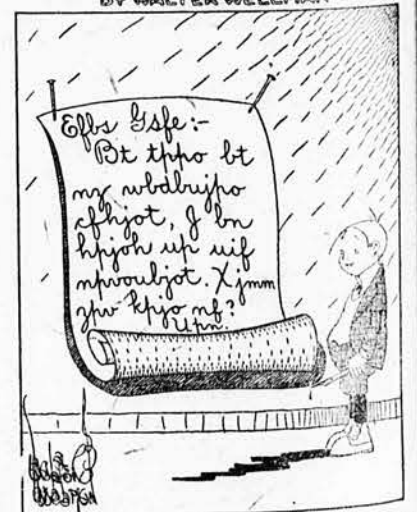 BY WALTER WELLMAN
Efbs Gsfe:-
Bt tppo bt
nz wbdbujpo
cfhjot, J bn
hpjoh up uif
npvoubjot. Xjmm
zpv kpjo nf?
Upn.